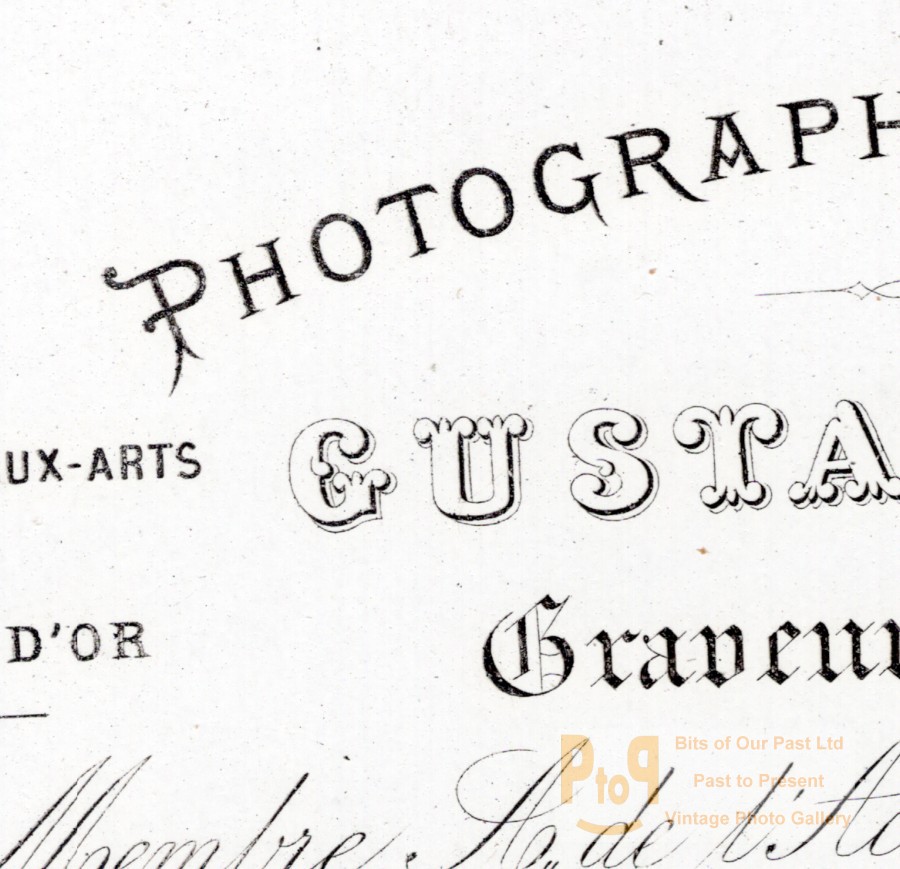 PHOTOGRAPH
GUSTA
UX-ARTS
D'OR
Graveur
Membre A. de l'A
PtoP
Bits of Our Past Ltd
Past to Present
Vintage Photo Gallery